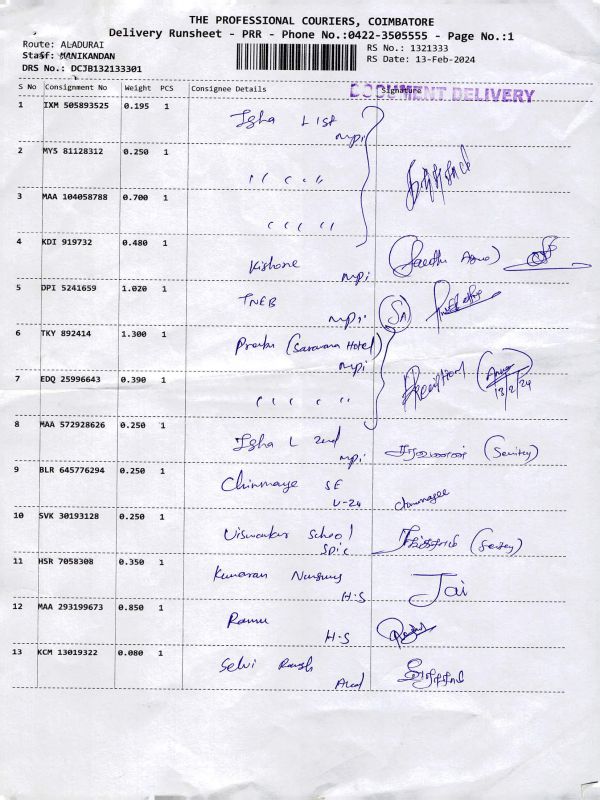 THE PROFESSIONAL COURIERS, COIMBATORE
Delivery Runsheet - PRR - Phone No.:0422-3505555 - Page No.:1
Route: ALADURAI
RS No.: 1321333
Staff: MANIKANDAN
RS Date: 13-Feb-2024
DRS No.: DCJB132133301
DOCUMENT DELIVERY
S No Consignment No Weight PCS Consignee Details Signature
1 IXM 505893525 0.195 1
mpi
2 MYS 81128312 0.250 1
" " "
3 MAA 104058788 0.700 1
" " "
4 KDI 919732 0.480 1 Kishore
mpi
5 DPI 5241659 1.020 1 TNEB
mpi SA
6 TKY 892414 1.300 1 Prabu (Saravana Hotel)
mpi
7 EDQ 25996643 0.390 1 Reception
" " " 13/2/24
8 MAA 572928626 0.250 1
mpi
9 BLR 645776294 0.250 1 Chinmaye SE
U-24
10 SVK 30193128 0.250 1 School
11 HSR 7058308 0.350 1 Kumaran Jai
H.S
12 MAA 293199673 0.850 1 Ramu
H.S
13 KCM 13019322 0.080 1 Selvi